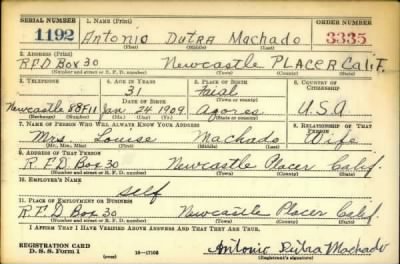 SERIAL NUMBER 1. NAME (Print) ORDER NUMBER
1192 Antonio Dutra Machado 3335
(First) (Middle) (Last)
2. ADDRESS (Print)
R.F.D Box 30 Newcastle PLACER Calif.
(Number and street or R. F. D. number) (Town) (County) (State)
3. TELEPHONE 4. AGE IN YEARS 5. PLACE OF BIRTH 6. COUNTRY OF CITIZENSHIP
31 Faial
DATE OF BIRTH (Town or county)
Newcastle 88F11 Jan 24 1909 Azores U.S.A
(Exchange) (Number) (Mo.) (Day) (Yr.) (State or country)
7. NAME OF PERSON WHO WILL ALWAYS KNOW YOUR ADDRESS 8. RELATIONSHIP OF THAT PERSON
Mrs Louise Machado Wife
(Mr., Mrs., Miss) (First) (Middle) (Last)
9. ADDRESS OF THAT PERSON
R.F.D. Box 30 Newcastle Placer Calif.
(Number and street or R. F. D. number) (Town) (County) (State)
10. EMPLOYER'S NAME
Self
11. PLACE OF EMPLOYMENT OR BUSINESS
R.F.D Box 30 Newcastle Placer Calif.
(Number and street or R. F. D. number) (Town) (County) (State)
I AFFIRM THAT I HAVE VERIFIED ABOVE ANSWERS AND THAT THEY ARE TRUE.
REGISTRATION CARD
D. S. S. Form 1 (over) 16—17105 Antonio Dutra Machado
(Registrant's signature)